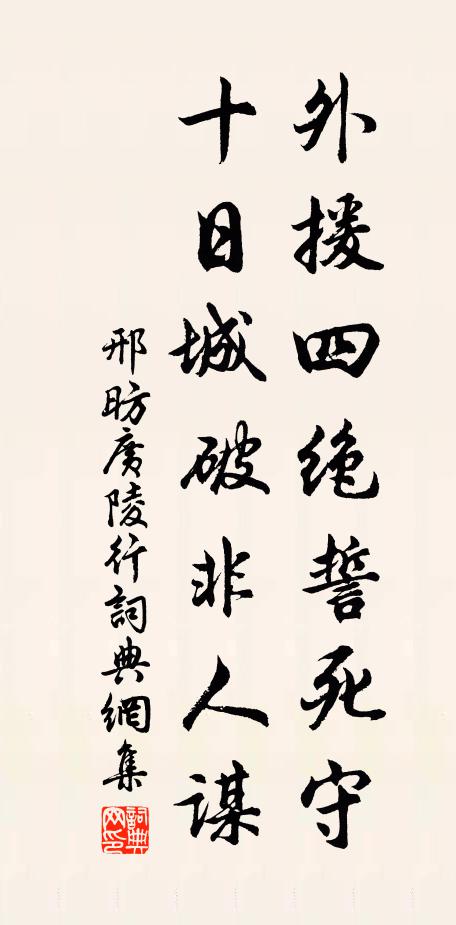 外援四绝誓死守
十日城破非人谋
邢昉廣陵行詞典網集
詞典網印